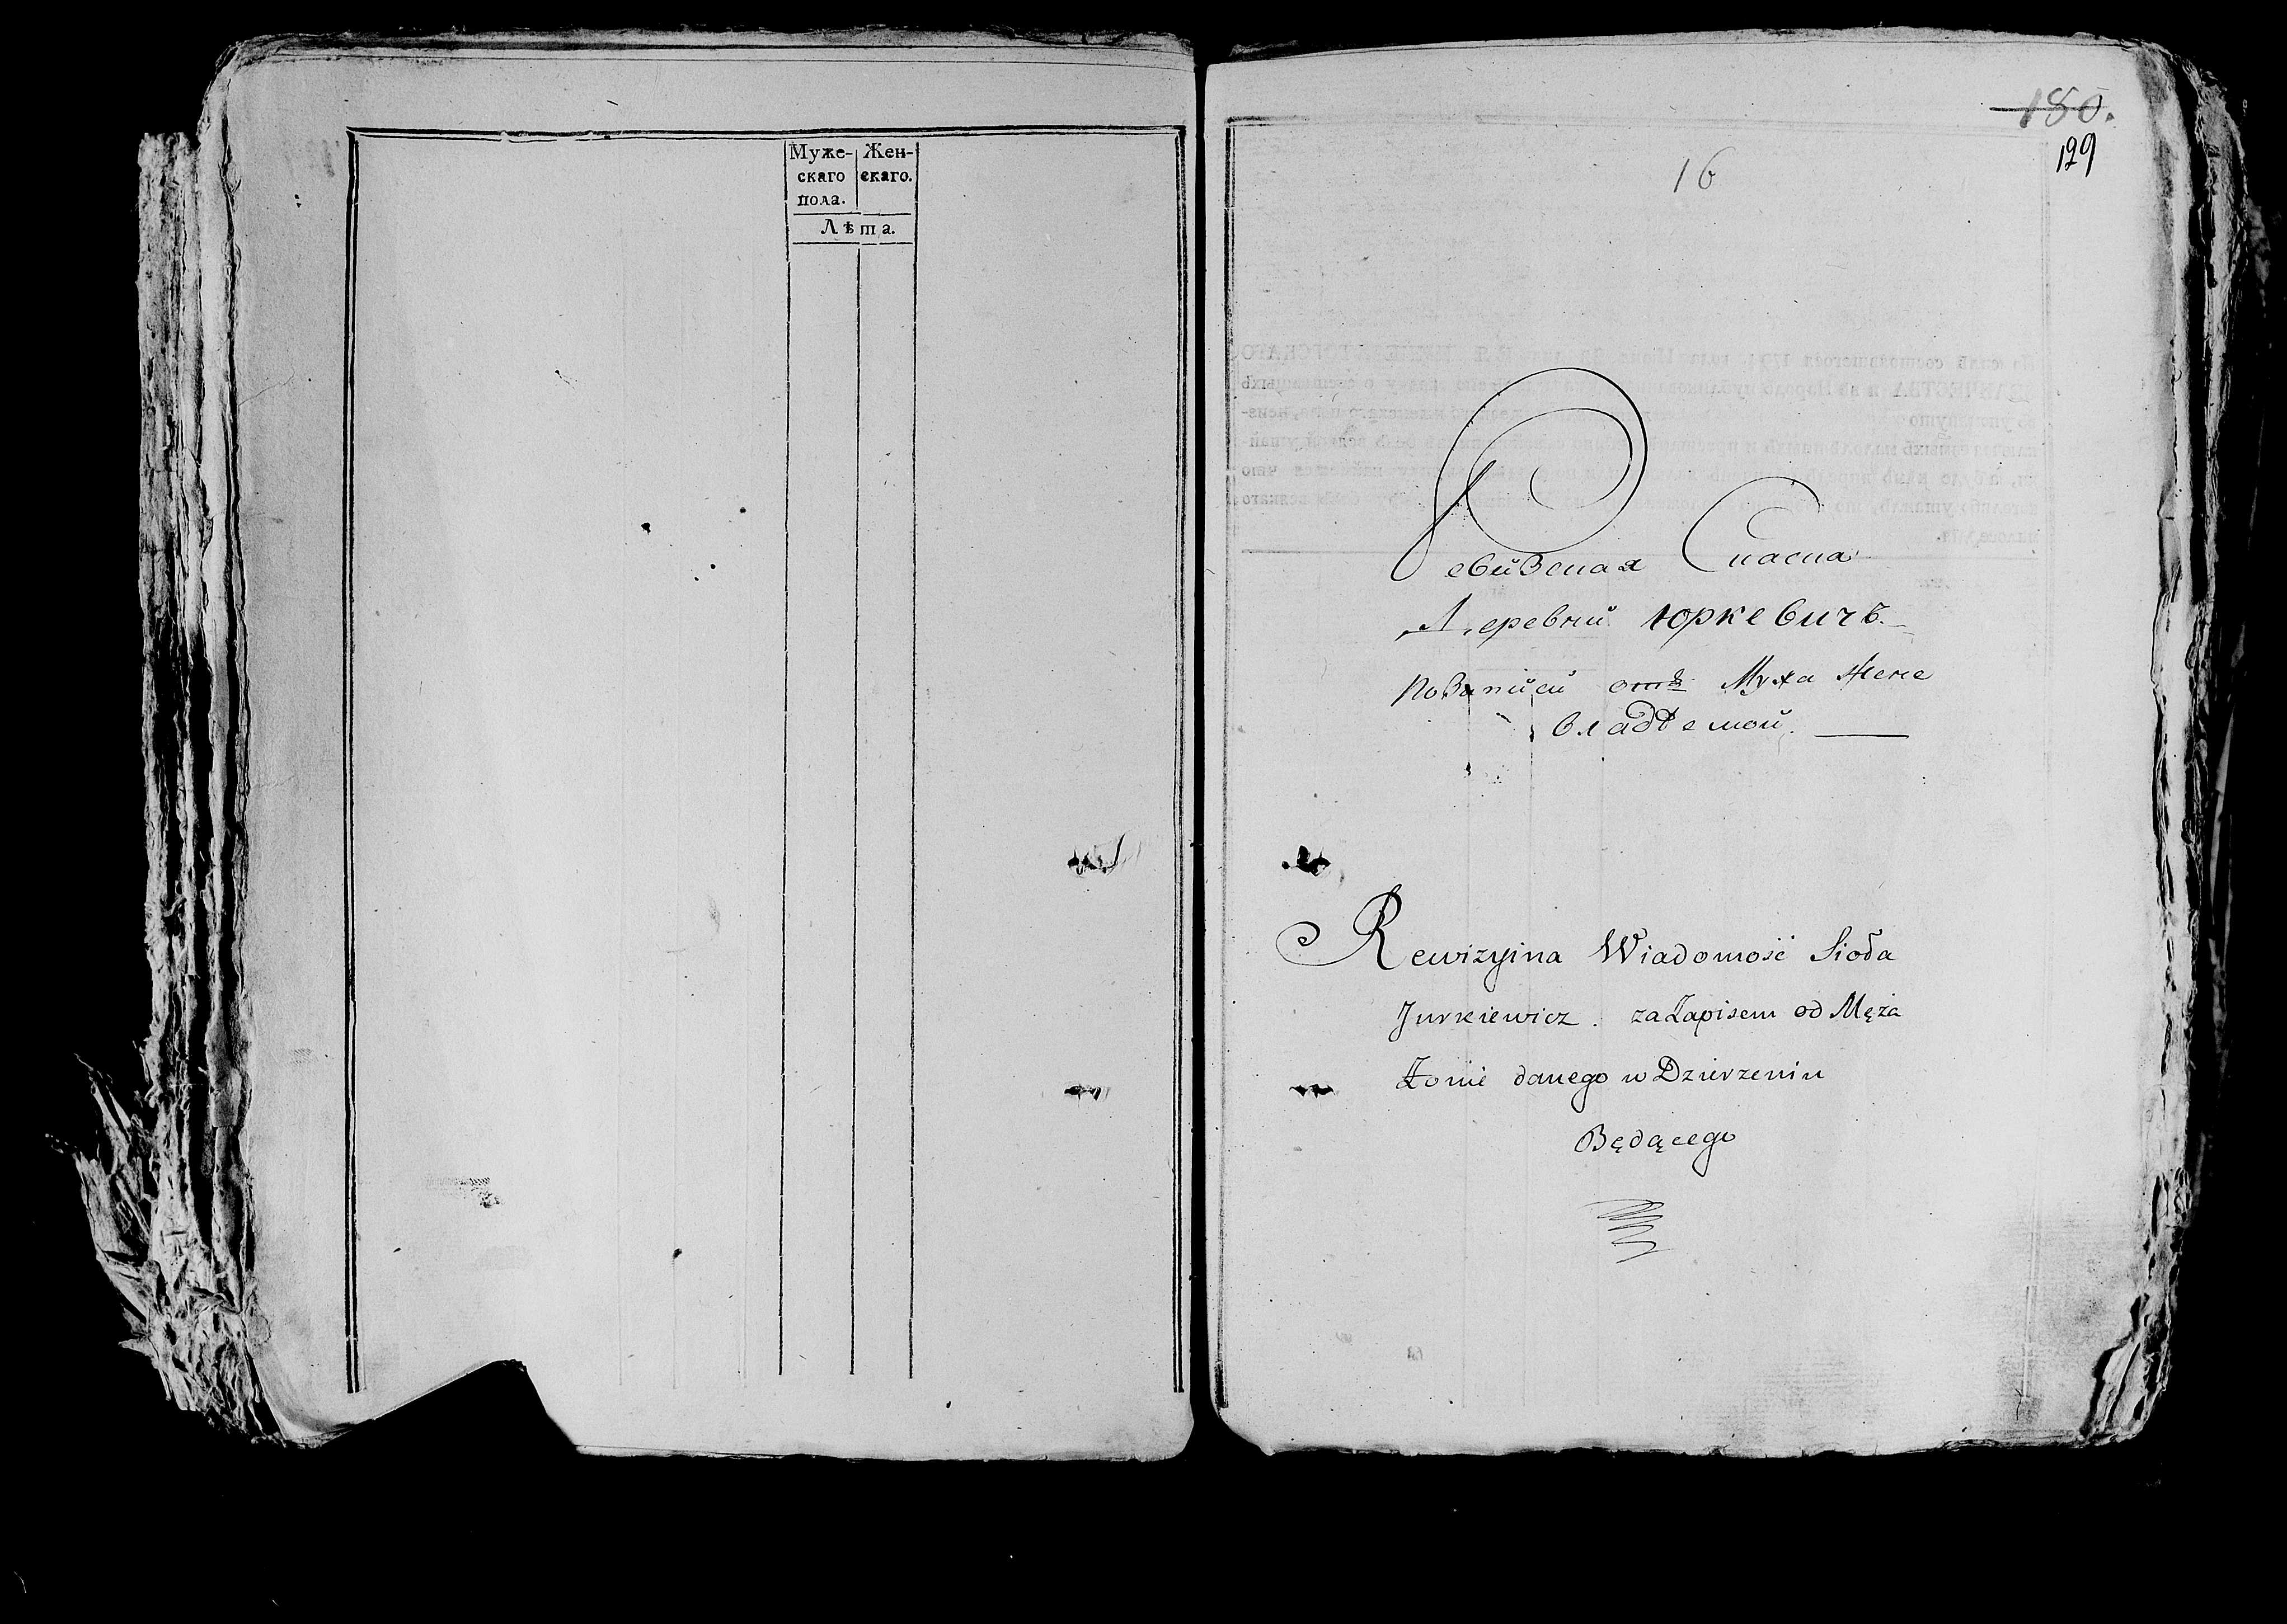 Муже-
скаго
пола.
Жен-
скаго.
Лѣта.
180.
129
16
Ревизская Сказка
Деревни Юркевичъ.
По записи отъ Мужа Жене
владѣемой.
Rewizyina Wiadomość Sioła
Jurkiewicz. za Zapisem od Męża
Żonie danego w Dzierżeniu
Będącego